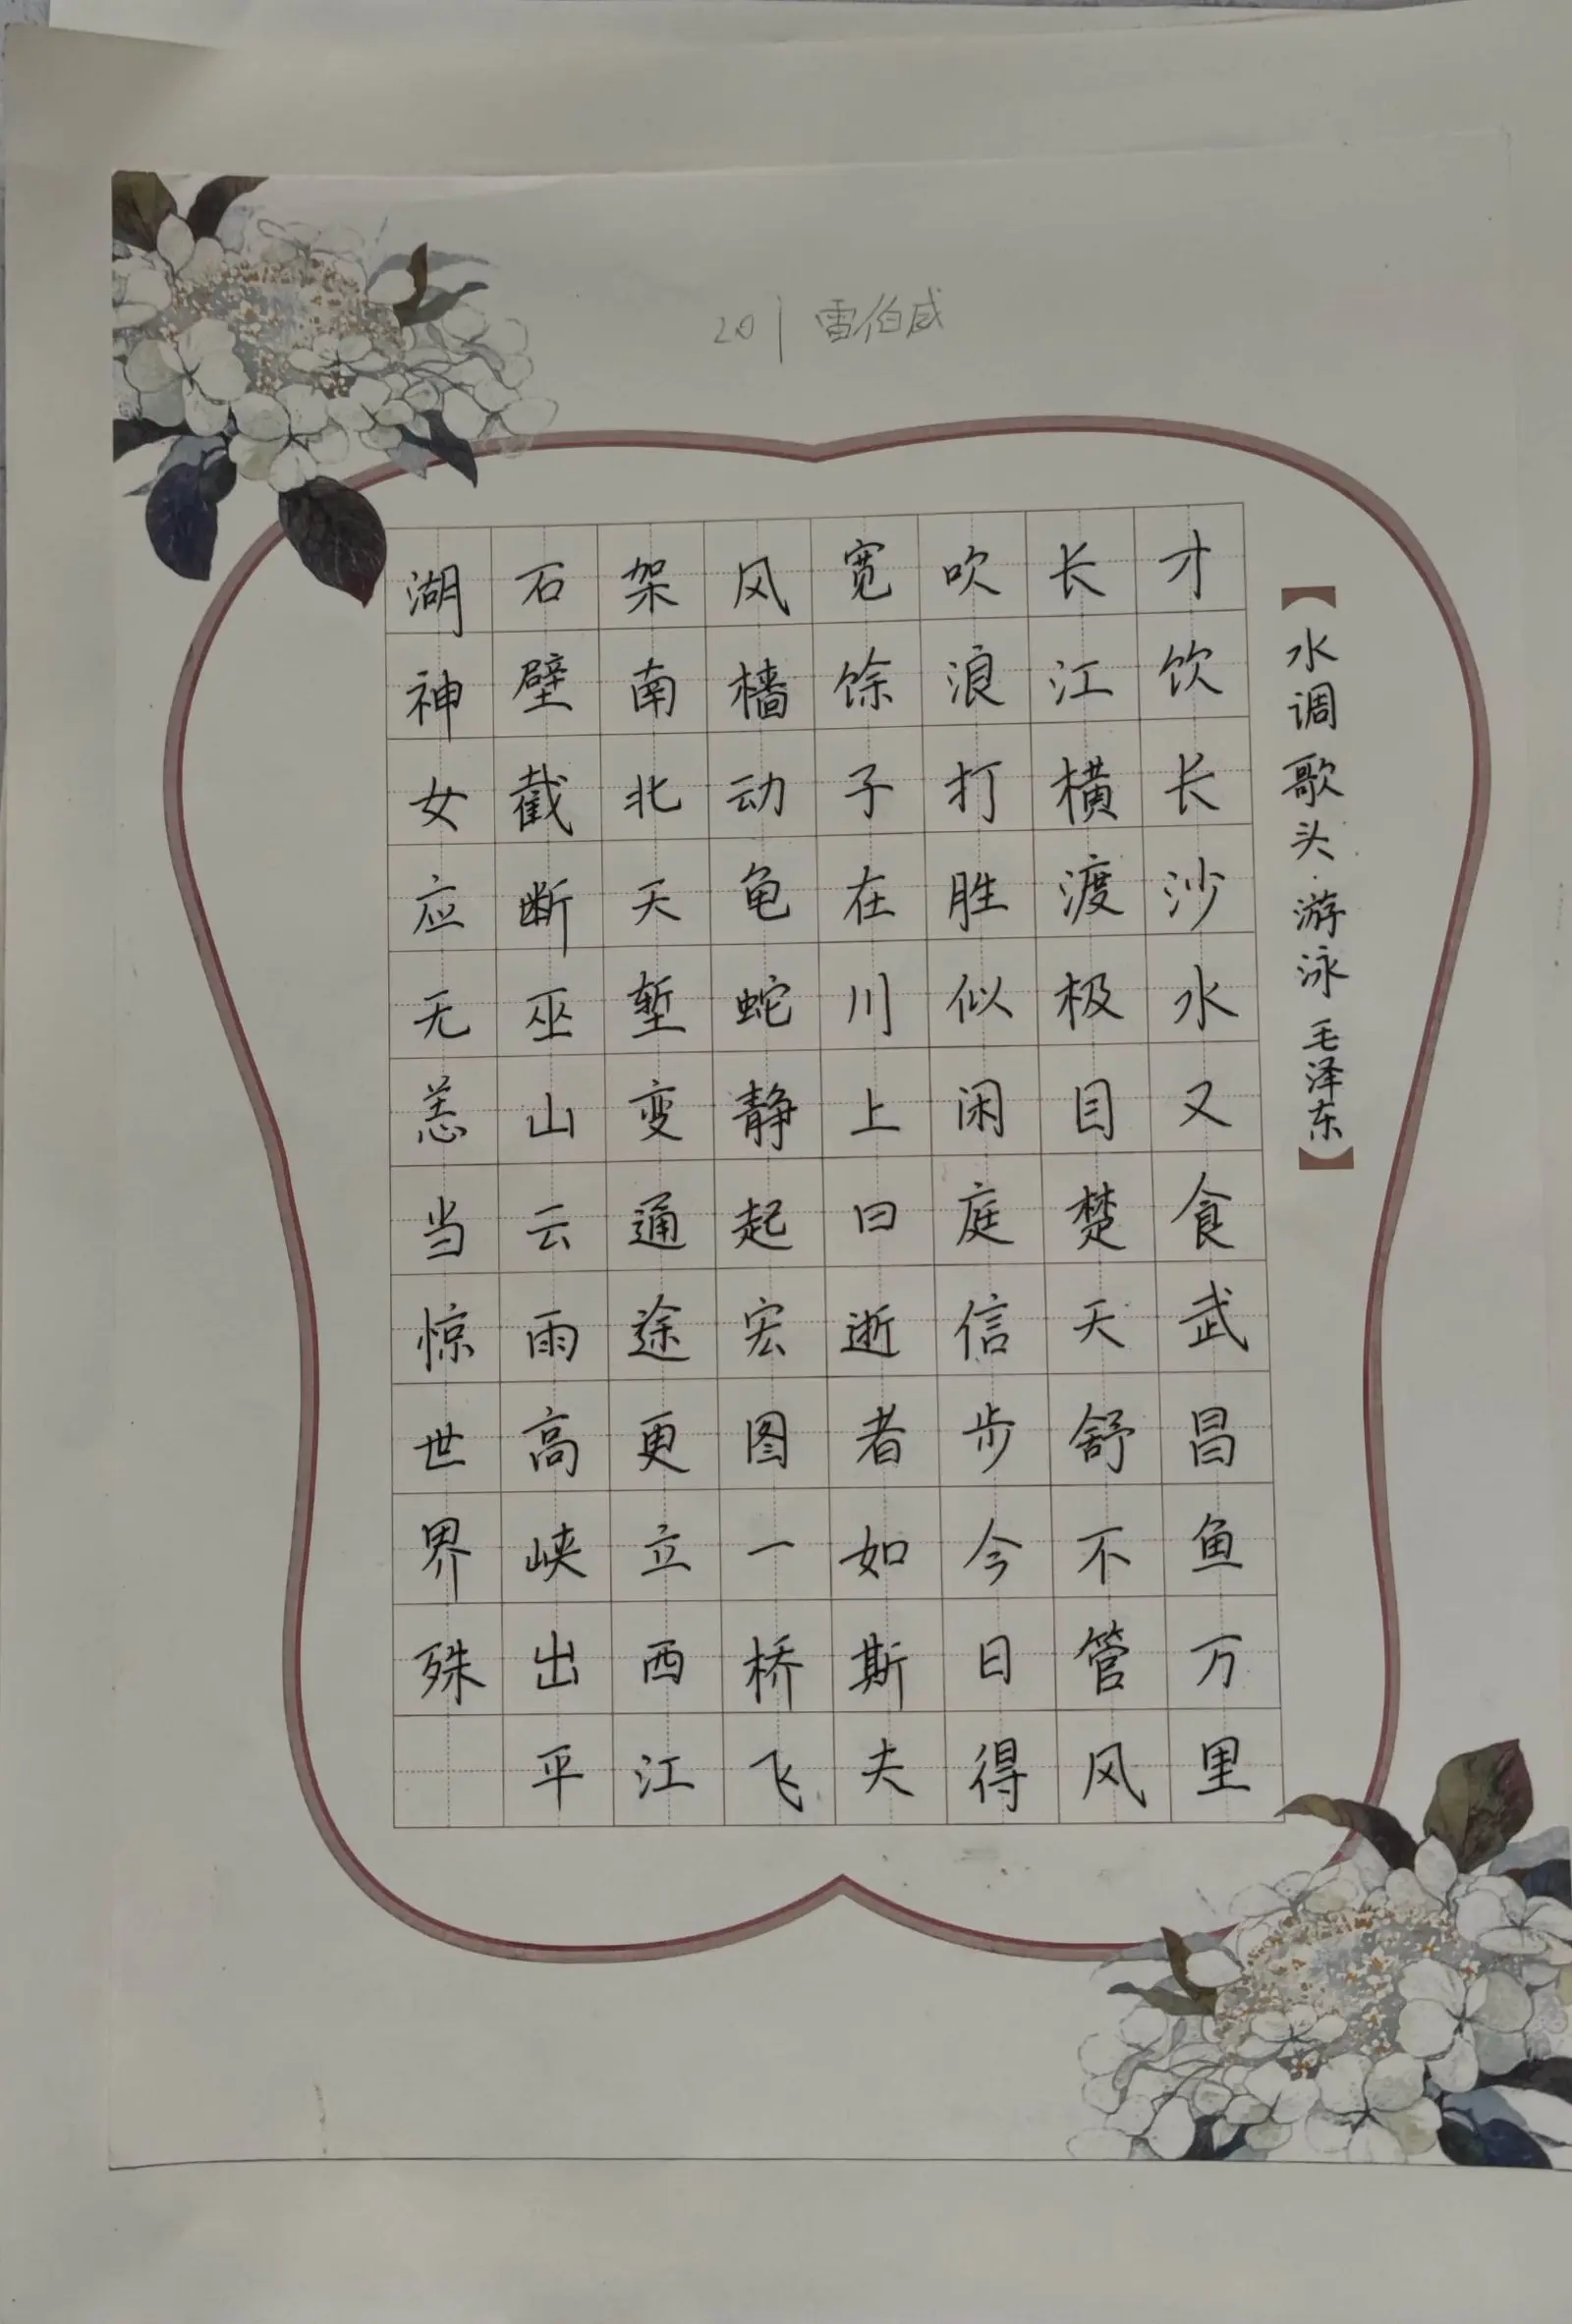 201 雷伯威
【水调歌头·游泳 毛泽东】
才饮长沙水又食武昌鱼万里
长江横渡极目楚天舒不管风
吹浪打胜似闲庭信步今日得
宽馀子在川上曰逝者如斯夫
风樯动龟蛇静起宏图一桥飞
架南北天堑变通途更立西江
石壁截断巫山云雨高峡出平
湖神女应无恙当惊世界殊